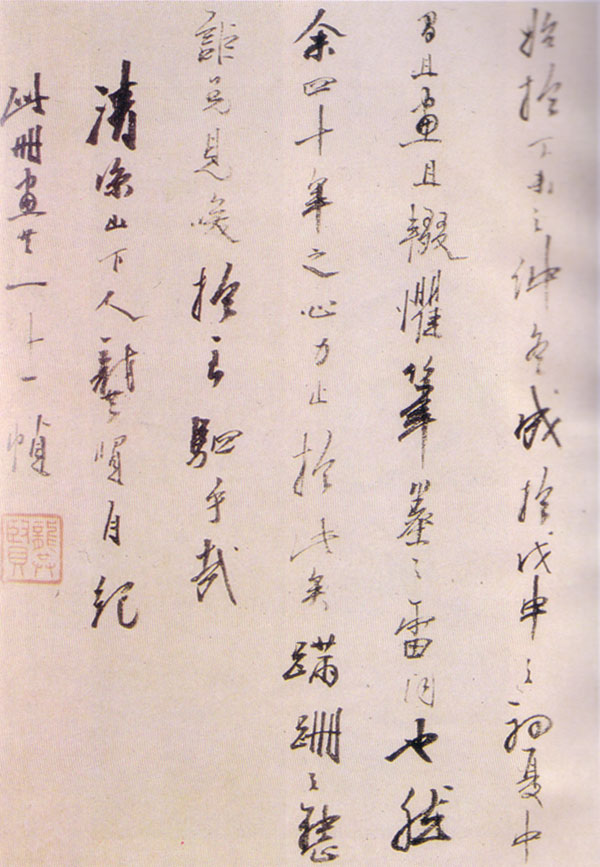 始於丁未之仲冬成於戊申之初夏中
間且畫且輟懼筆墨之雷同也然
余四十年之心力止於此矣蹣跚之鱉
詎免見咲於駟乎哉
清涼山下人龔賢自紀
此冊畫共一十一幀
龔賢